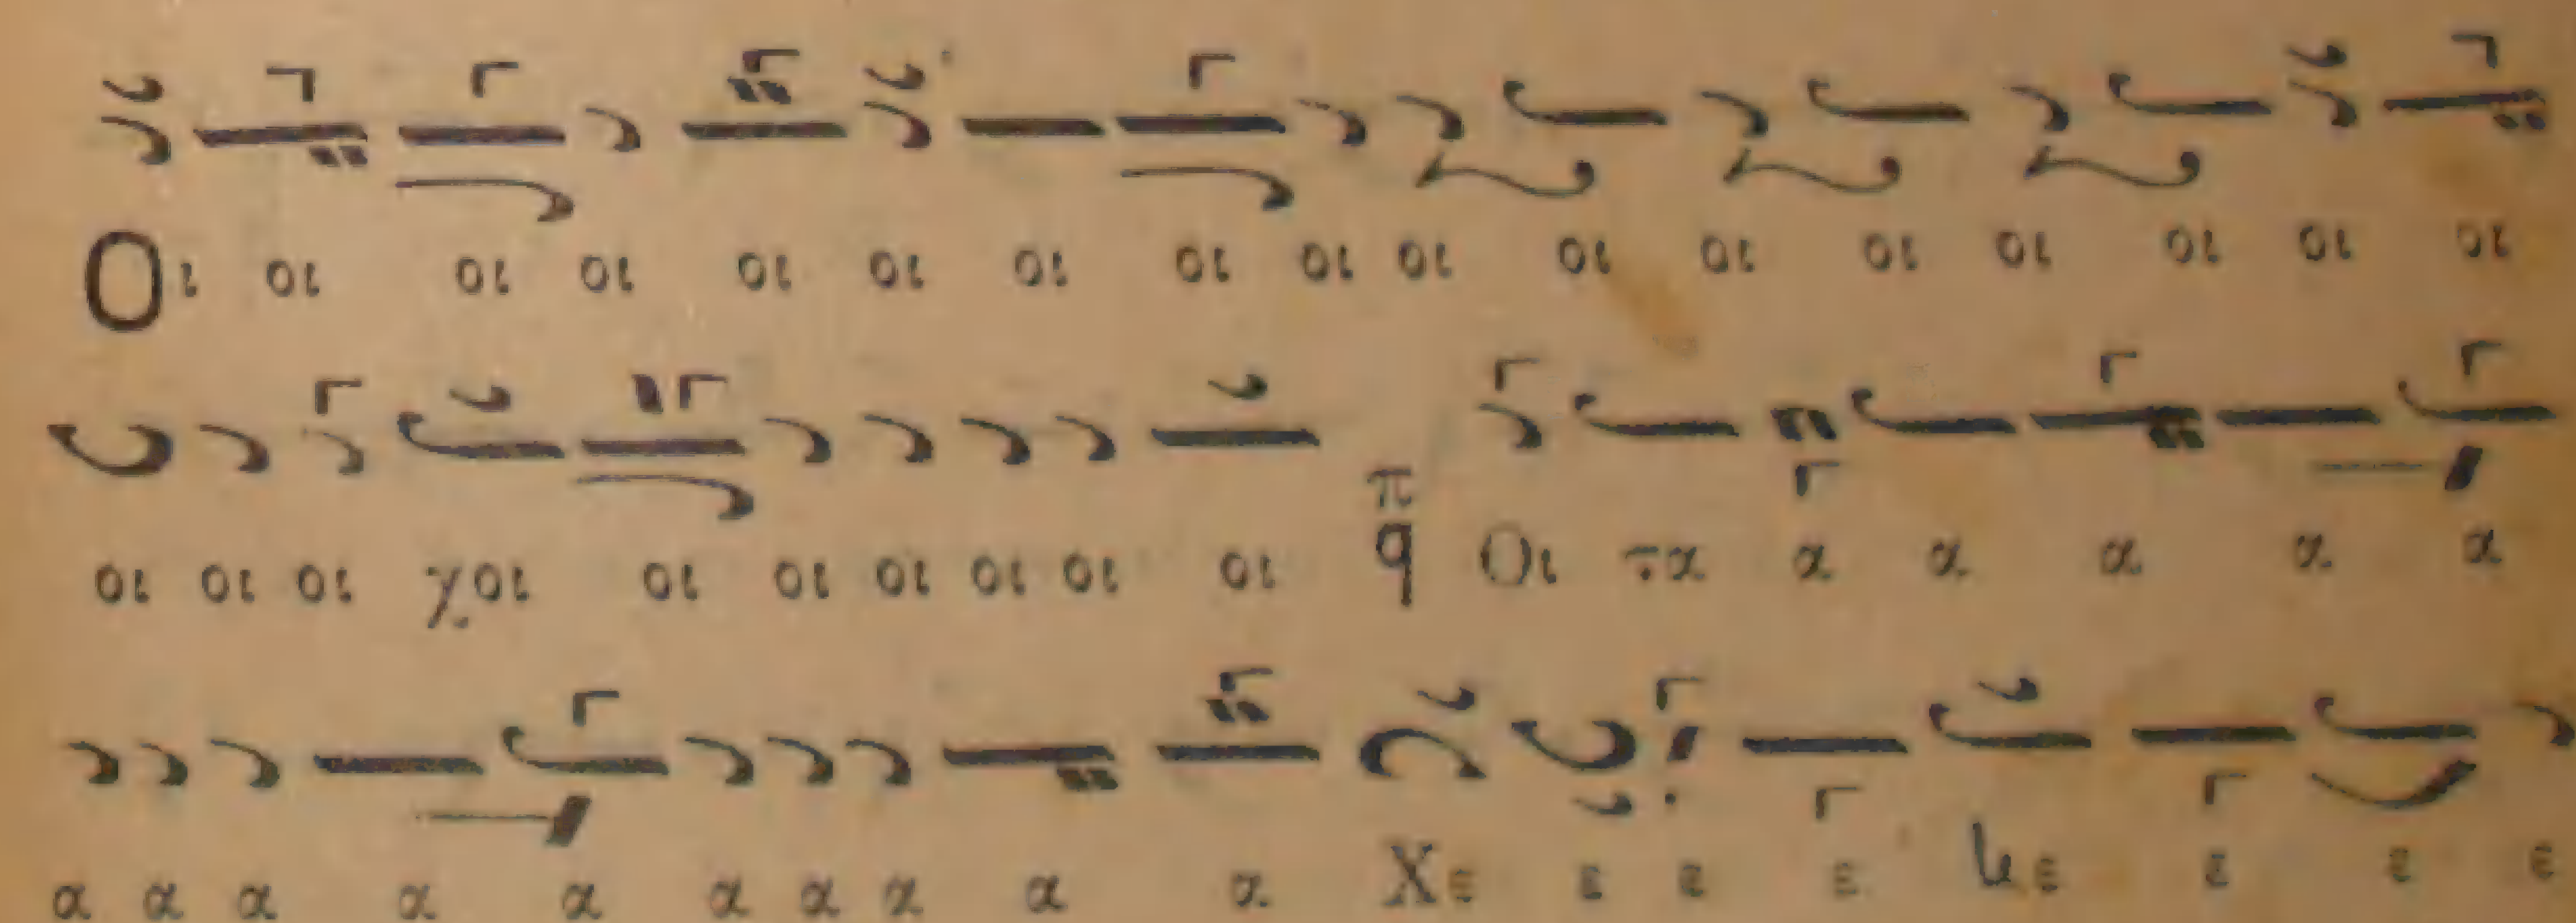 Οι οι οι οι οι οι οι οι οι οι οι οι οι οι οι οι οι
οι οι οι χοι οι οι οι οι οι οι π q Οι τα α α α α α
α α α α α α α α α α Χε ε ε ε ε ε ε